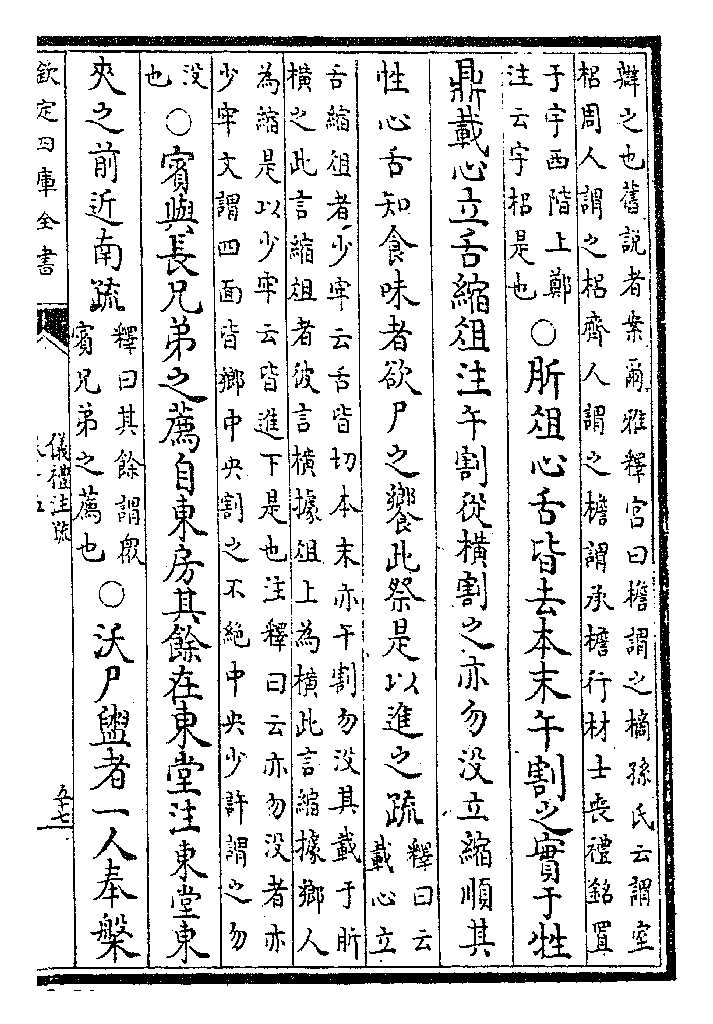 辨之也舊說者案爾雅釋宫曰檐謂之樀孫氏云謂室
梠周人謂之梠齊人謂之檐謂承檐行材士喪禮銘置
于宇西階上鄭
注云宇梠是也
○肵俎心舌皆去本末午割之實于牲
鼎載心立舌縮俎注午割從横割之亦勿没立縮順其
性心舌知食味者欲尸之饗此祭是以進之疏
釋曰云
載心立
舌縮俎者少牢云舌皆切本末亦午割勿没其載于肵
横之此言縮俎者彼言横據俎上為横此言縮據鄉人
為縮是以少牢云皆進下是也注釋曰云亦勿没者亦
少牢文謂四面皆鄉中央割之不絶中央少許謂之勿
没
也
○賓與長兄弟之薦自東房其餘在東堂注東堂東
夾之前近南疏
釋曰其餘謂衆
賓兄弟之薦也
○沃尸盥者一人奉槃
欽定四庫全書
儀禮注疏
五十七